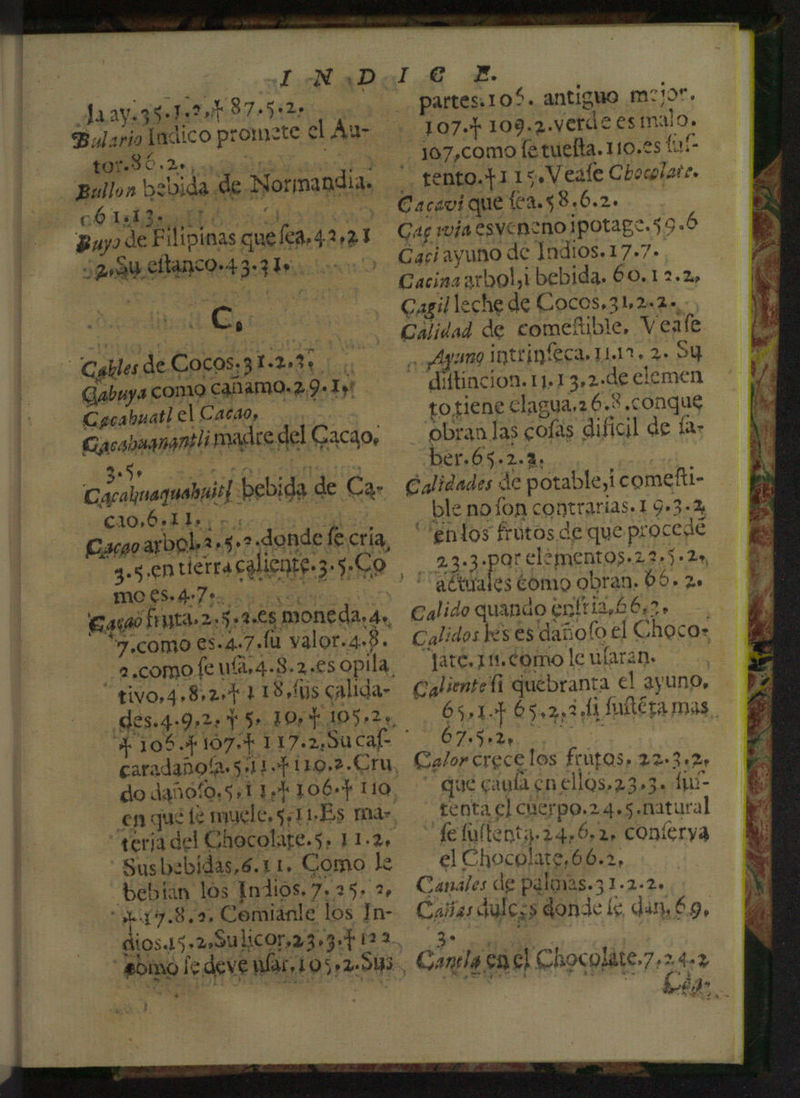 INDICE.
la ay.35.1.2,† 87.5.2.
Bulario Indico promete el Au-
tor.86.2.
Bullon bebida de Normandia.
Buyo de Filipinas que sea.42,21
2,Su estanco.43.31.
C.
Cables de Cocos.31.2.
Cabuya como cañamo.29.1.
Cacahuatl el Cacao,
Cacahuanantli madre del Cacao,
3.5.
Cacahuaquahuitl bebida de Ca-
cao,6.11.
Cacao arbol,2,5,2.donde se cria,
3.5.en tierra caliente.3.5.Co
mo es.4.7.
Cacao fruta.2.5.2.es moneda.4,
7.como es.4.7.su valor.4.8.
2.como se usa,4.8.2.es opila
tivo,4,8,2,† 118,sus calida-
des.4.9,2, † 5, 10,† 105,2,
† 106.† 107.† 117.2,Su cas-
cara dañosa.5.11.†110.2.Cru
do dañoso.5,11,† 106.† 110
en que se muele.5,11.Es ma-
teria del Chocolate.5, 11.2,
Sus bebidas,6.11. Como le
bebian los Indios.7,25, 2,
†17.8.2. Comianle los In-
dios.15.2,Su licor,23,3,† 122
como se deve usar.105,2.Sus
partes.105. antiguo mejor.
107.† 109.2.verde es malo.
107,como se tuesta.110.es sus-
tento.†115.Vease Chocolate.
Cacavi que sea.58,6.2.
es veneno i potage.59.6
Caci ayuno de Indios.17.7.
Cacina arbol,i bebida. 60.12.2,
Cagil leche de Cocos,31,2.2.
Calidad de comestible. Vease
Ayuno intrinseca.11.12. 2. Su
distincion.11.13,2.de elemen
to tiene el agua.26.8.con que
obran las cosas dificil de sa-
ber.65.2.2.
Calidades de potable,i comesti-
ble no son contrarias.19.3.2
en los frutos de que procede
23.3.por elementos.22.5.2,
actuales como obran. 66. 2.
Calido quando enfria,66,2.
Calidos les es dañoso el Choco-
late.111.como le usaran.
Caliente si quebranta el ayuno,
65,1.† 65,2,2,si sustēta mas
67.5,2,
Calor crece los frutos. 22.3.2,
que causa en ellos,23,3. sus-
tenta el cuerpo.24.5.natural
se sustenta.24,6,2, conserva
el Chocolate,66.2,
Canales de palmas.31.2.2.
Cañas dulces donde se dan,69.
3.
Canela en el Chocolate.7,24.2